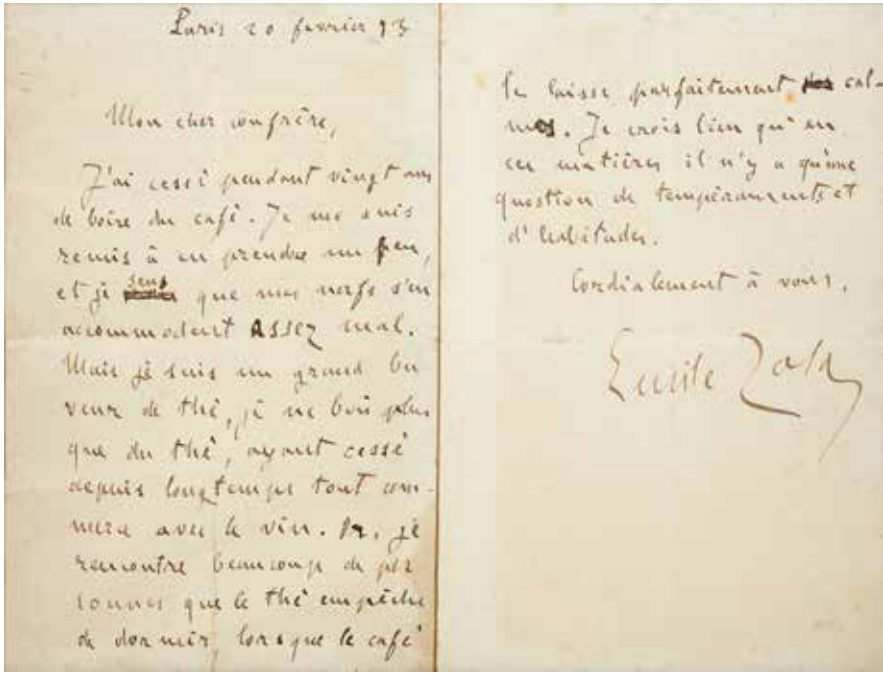 Paris 20 fevrier 93
Mon cher confrère,
J'ai cessé pendant vingt ans
de boire du café. Je me suis
remis à en prendre un peu,
et je sens que mes nerfs s'en
accommodent assez mal.
Mais je suis un grand bu
veur de thé, je ne bois plus
que du thé, ayant cessé
depuis longtemps tout com-
merce avec le vin. Or, je
rencontre beaucoup de per
sonnes que le thé empêche
de dormir, lorsque le café
le laisse parfaitement cal-
mes. Je crois bien qu'en
ces matières il n'y a qu'une
question de tempéraments et
d'habitudes.
Cordialement à vous.
Emile Zola